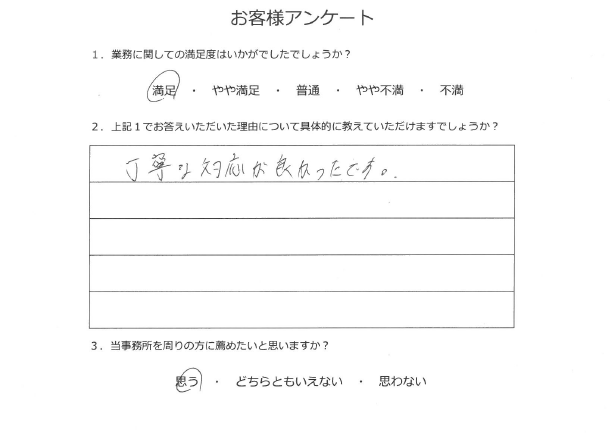 お客様アンケート
１．業務に関しての満足度はいかがでしたでしょうか？
満足　・　やや満足　・　普通　・　やや不満　・　不満
２．上記１でお答えいただいた理由について具体的に教えていただけますでしょうか？
丁寧な対応が良かったです。
３．当事務所を周りの方に薦めたいと思いますか？
思う　・　どちらともいえない　・　思わない